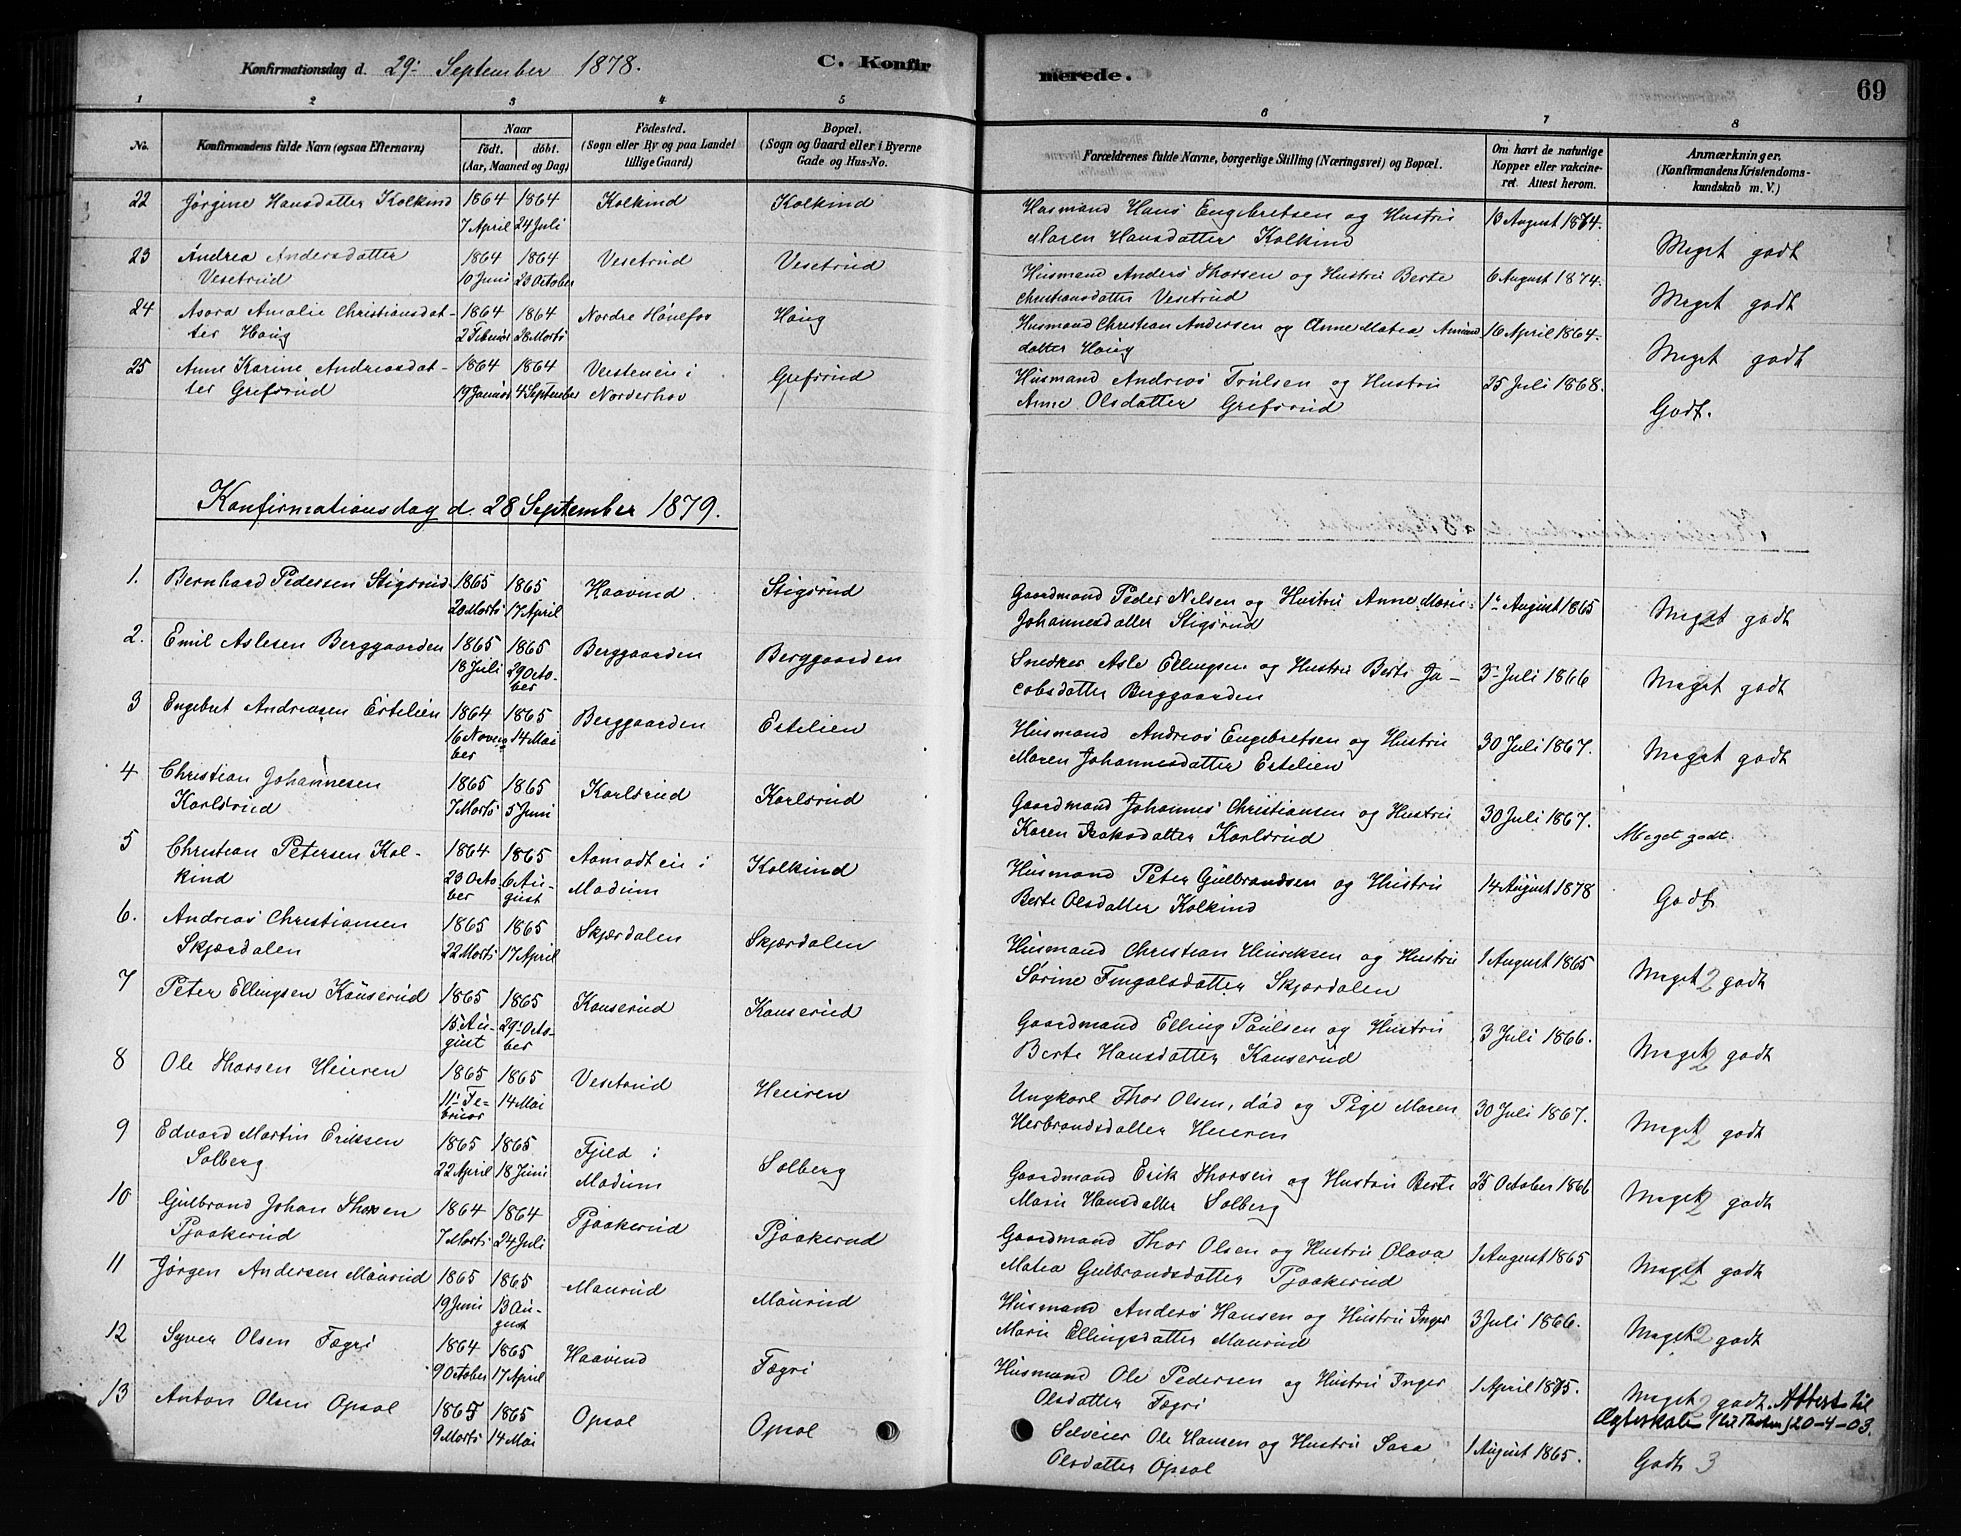 Konfirmationsdag d. 29. September 1878. C. Konfirmerede. 69
1 2 3 4 5 6 7 8
No. Konfirmandens fulde Navn (ogsaa Efternavn) Naar født. døbt. (Aar, Maaned og Dag) Födested. (Sogn eller By og paa Landet tillige Gaard) Bopæl. (Sogn og Gaard eller i Byerne Gade og Hus-No. Forældrenes fulde Navne, borgerlige Stilling (Næringsvei) og Bopæl. Om havt de naturlige Kopper eller vakcineret. Attest herom. Anmærkninger. (Konfirmandens Kristendomskundskab m. V.)
22 Jørgine Hansdatter Kolkind 1864 1864 Kolkind Kolkind Husmand Hans Engebretsen og Hustru 13 August 1874.
7 April 24 Juli Maren Hansdatter Kolkind Meget godt
23 Andrea Andersdatter 1864 1864 Vesetrud Vesetrud Husmand Anders Thorsen og Hustru Berte 6 August 1874.
Vesetrud 10 Juni 23 October Christiansdatter Vesetrud Meget godt
24 Asora Amalie Christiansdat- 1864 1864 Nordre Hønefos Haug Husmand Christian Andersen og Anne Matea Amund 16 April 1864.
ter Haug 2 Februar 28 Marts datter Haug Meget godt
25 Anne Karine Andreasdat- 1864 1864 Versteneie i Grefsrud Husmand Andreas Trulsen og Hustru 25 Juli 1868.
ter Grefsrud 19 Januar 4 September Norderhov Anne Olsdatter Grefsrud Godt.
Konfirmationsdag d. 28 September 1879.
1. Bernhard Pedersen Stigsrud 1865 1865 Haavind Stigsrud Gaardmand Peder Nilsen og Hustru Anne Marie 1. August 1865
20 Marts 17 April Johannesdatter Stigsrud Meget godt 2
2. Emil Aslesen Berggaarden 1865 1865 Berggaarden Berggaarden Snedker Asle Ellingsen og Hustru Berte Ja- 3 Juli 1866
18 Juli 29 Octo- cobsdatter Berggaarden Meget godt 2
ber
3 Engebret Andreasen Estelien 1864 1865 Berggaarden Estelien Husmand Andreas Engebretsen og Hustru 30 Juli 1867.
16 Novem 14 Mai Maren Johannesdatter Estelien Meget godt 2
ber
4 Christian Johannesen 1865 1865 Karlsrud Karlsrud Gaardmand Johannes Christiansen og Hustru 30 Juli 1867.
Karlsrud 7 Marts 5 Juni Karen Isaksdatter Karlsrud Meget godt
5 Christian Petersen Kol- 1864 1865 Aamodt eie i Kolkind Husmand Peter Gulbrandsen og Hustru 14 August 1878
kind 23 Octo- 6 Au- Modum Berte Olsdatter Kolkind Godt
ber gust
6. Andreas Christiansen 1865 1865 Skjærdalen Skjærdalen Husmand Christian Henriksen og Hustru 1 August 1865
Skjærdalen 22 Marts 17 April Sørine Fingalsdatter Skjærdalen Meget 2 godt
7 Peter Ellingsen Kauserud 1865 1865 Kauserud Kauserud Gaardmand Elling Paulsen og Hustru 3 Juli 1866.
15 Au- 29 Octo- Berte Hansdatter Kauserud Meget 2 godt
gust ber
8 Ole Thorsen Heieren 1865 1865 Vesetrud Heieren Ungkarl Thor Olsen, død og Pige Maren 30 Juli 1867.
11 Fe- 14 Mai Herbrandsdatter Heieren Meget 2 godt
bruar
9 Edvard Martin Eriksen 1865 1865 Fjeld i Solberg Gaardmand Erik Thorsen og Hustru Berte 25 October 1866
Solberg 22 April 18 Juni Modum Marie Hansdatter Solberg Meget 2 godt
10 Gulbrand Johan Thorsen 1864 1864 Pjaakerud Pjaakerud Gaardmand Thor Olsen og Hustru Olava 1 August 1865
Pjaakerud 7 Marts 24 Juli Matea Gulbrandsdatter Pjaakerud Meget 2 godt
11 Jørgen Andersen Maurud 1865 1865 Maurud Maurud Husmand Anders Hansen og Hustru Inger 3 Juli 1866.
19 Juni 13 Au- Marie Ellingsdatter Maurud Meget 2 godt
gust
12 Syver Olsen Fægri 1864 1865 Haavind Fægri Husmand Ole Pedersen og Hustru Inger 1 April 1875.
9 October 17 April Olsdatter Fægri Meget 2 godt. Attest til
13 Anton Olsen Opsal 1865 1865 Opsal Opsal Selveier Ole Hansen og Hustru Sara 1 August 1865. 20-4-03.
9 Marts 14 Mai Olsdatter Opsal Godt 3